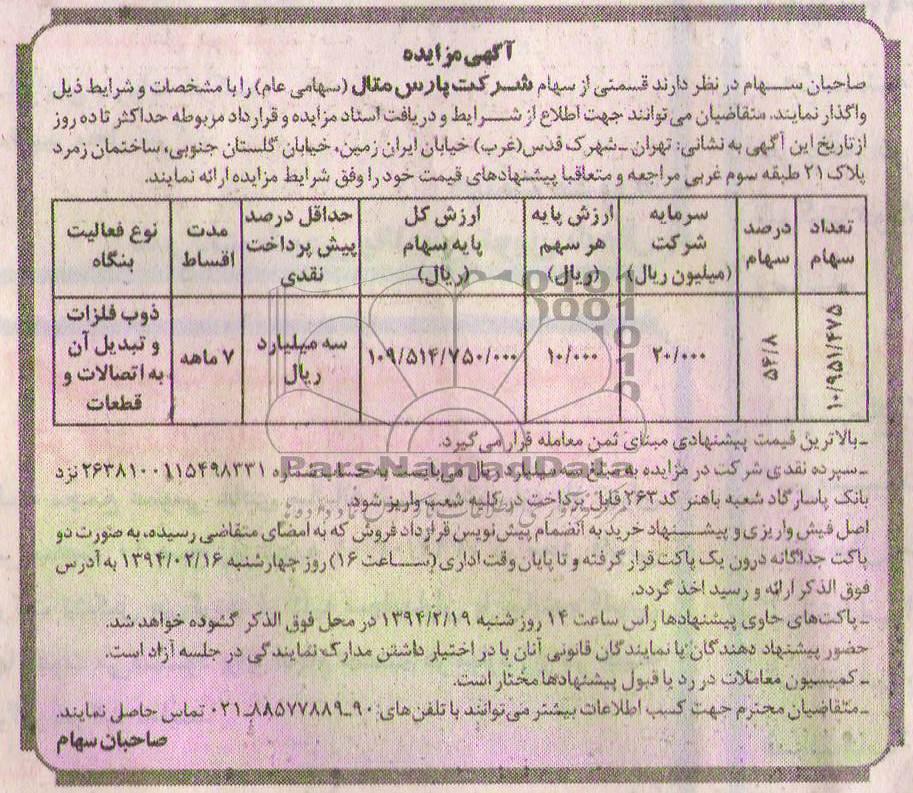 آگهی مزایده
صاحبان سهام در نظر دارند قسمتی از سهام شرکت پارس متال (سهامی عام) را با مشخصات و شرایط ذیل
واگذار نمایند. متقاضیان می‌توانند جهت اطلاع از شرایط و دریافت اسناد مزایده و قرارداد مربوطه حداکثر تا ده روز
از تاریخ این آگهی به نشانی: تهران ـ شهرک قدس (غرب) خیابان ایران زمین، خیابان گلستان جنوبی، ساختمان زمرد
پلاک ۲۱ طبقه سوم غربی مراجعه و متعاقبا پیشنهادهای قیمت خود را وفق شرایط مزایده ارائه نمایند.
تعداد سهام
درصد سهام
سرمایه شرکت (میلیون ریال)
ارزش پایه هر سهم (ریال)
ارزش کل پایه سهام (ریال)
حداقل درصد پیش پرداخت نقدی
مدت اقساط
نوع فعالیت بنگاه
۱۰/۹۵۱/۴۷۵
۵۴/۸
۲۰/۰۰۰
۱۰/۰۰۰
۱۰۹/۵۱۴/۷۵۰/۰۰۰
سه میلیارد ریال
۷ ماهه
ذوب فلزات و تبدیل آن به اتصالات و قطعات
ـ بالاترین قیمت پیشنهادی مبنای ثمن معامله قرار می‌گیرد.
ـ سپرده نقدی شرکت در مزایده به مبلغ سه میلیارد ریال می‌بایست به حساب شماره ۲۶۳۸۱۰۰۱۱۵۴۹۸۳۳۱ نزد
بانک پاسارگاد شعبه باهنر کد ۲۶۳ قابل پرداخت در کلیه شعب واریز شود.
اصل فیش واریزی و پیشنهاد خرید به انضمام پیش‌نویس قرارداد فروش که به امضای متقاضی رسیده، به صورت دو
پاکت جداگانه درون یک پاکت قرار گرفته و تا پایان وقت اداری (ساعت ۱۶) روز چهارشنبه ۱۳۹۴/۰۲/۱۶ به آدرس
فوق الذکر ارائه و رسید اخذ گردد.
ـ پاکت‌های حاوی پیشنهادها رأس ساعت ۱۴ روز شنبه ۱۳۹۴/۲/۱۹ در محل فوق الذکر گشوده خواهد شد.
حضور پیشنهاد دهندگان یا نمایندگان قانونی آنان با در اختیار داشتن مدارک نمایندگی در جلسه آزاد است.
ـ کمیسیون معاملات در رد یا قبول پیشنهادها مختار است.
ـ متقاضیان محترم جهت کسب اطلاعات بیشتر می‌توانند با تلفن‌های: ۹۰ـ۸۸۵۷۷۸۸۹ـ۰۲۱ تماس حاصل نمایند.
صاحبان سهام
ParsNamadData